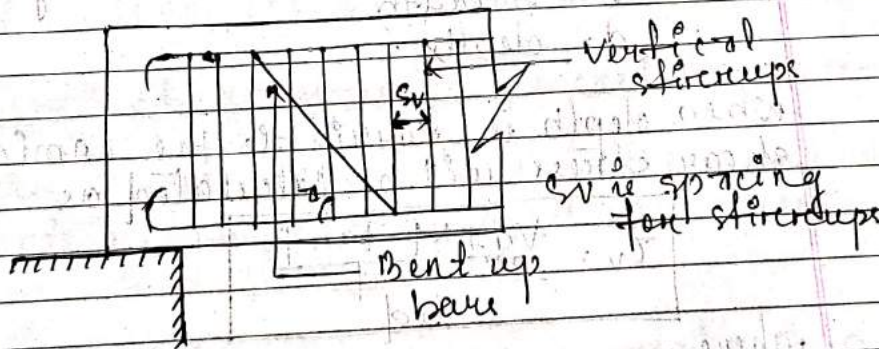 Vertical
stirrups
Sv
Sv is spacing
for stirrups
Bent up
bars